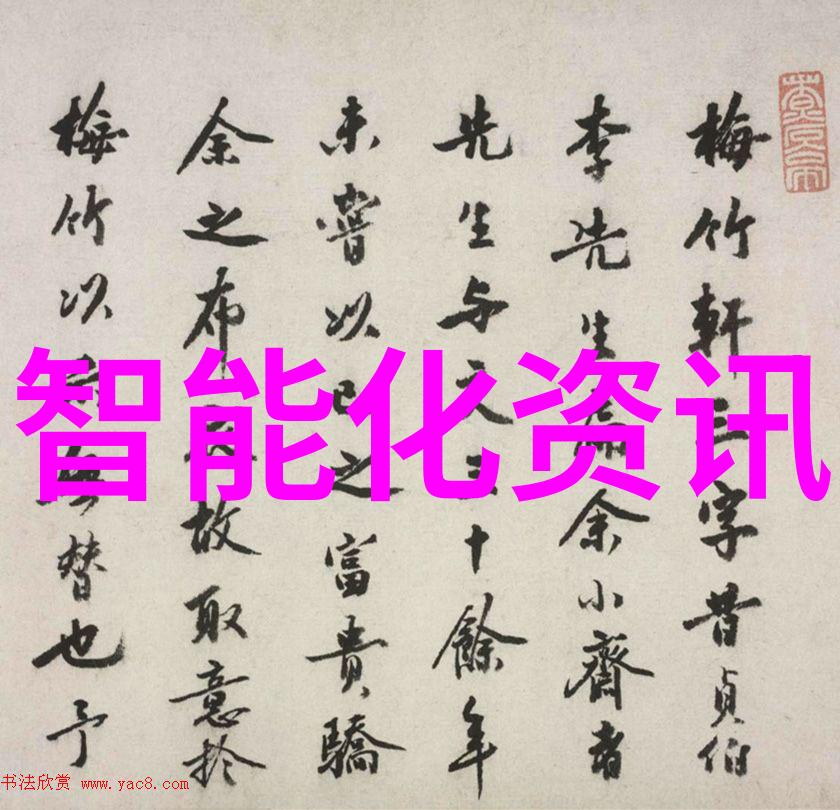 梅竹軒三字昔貞伯
李先生扁余小齋者
先生与交三十餘年
未嘗以己之富貴驕
余之布衣故取意於
梅竹以示無替也予
智能化资讯
书法欣赏 www.yac8.com